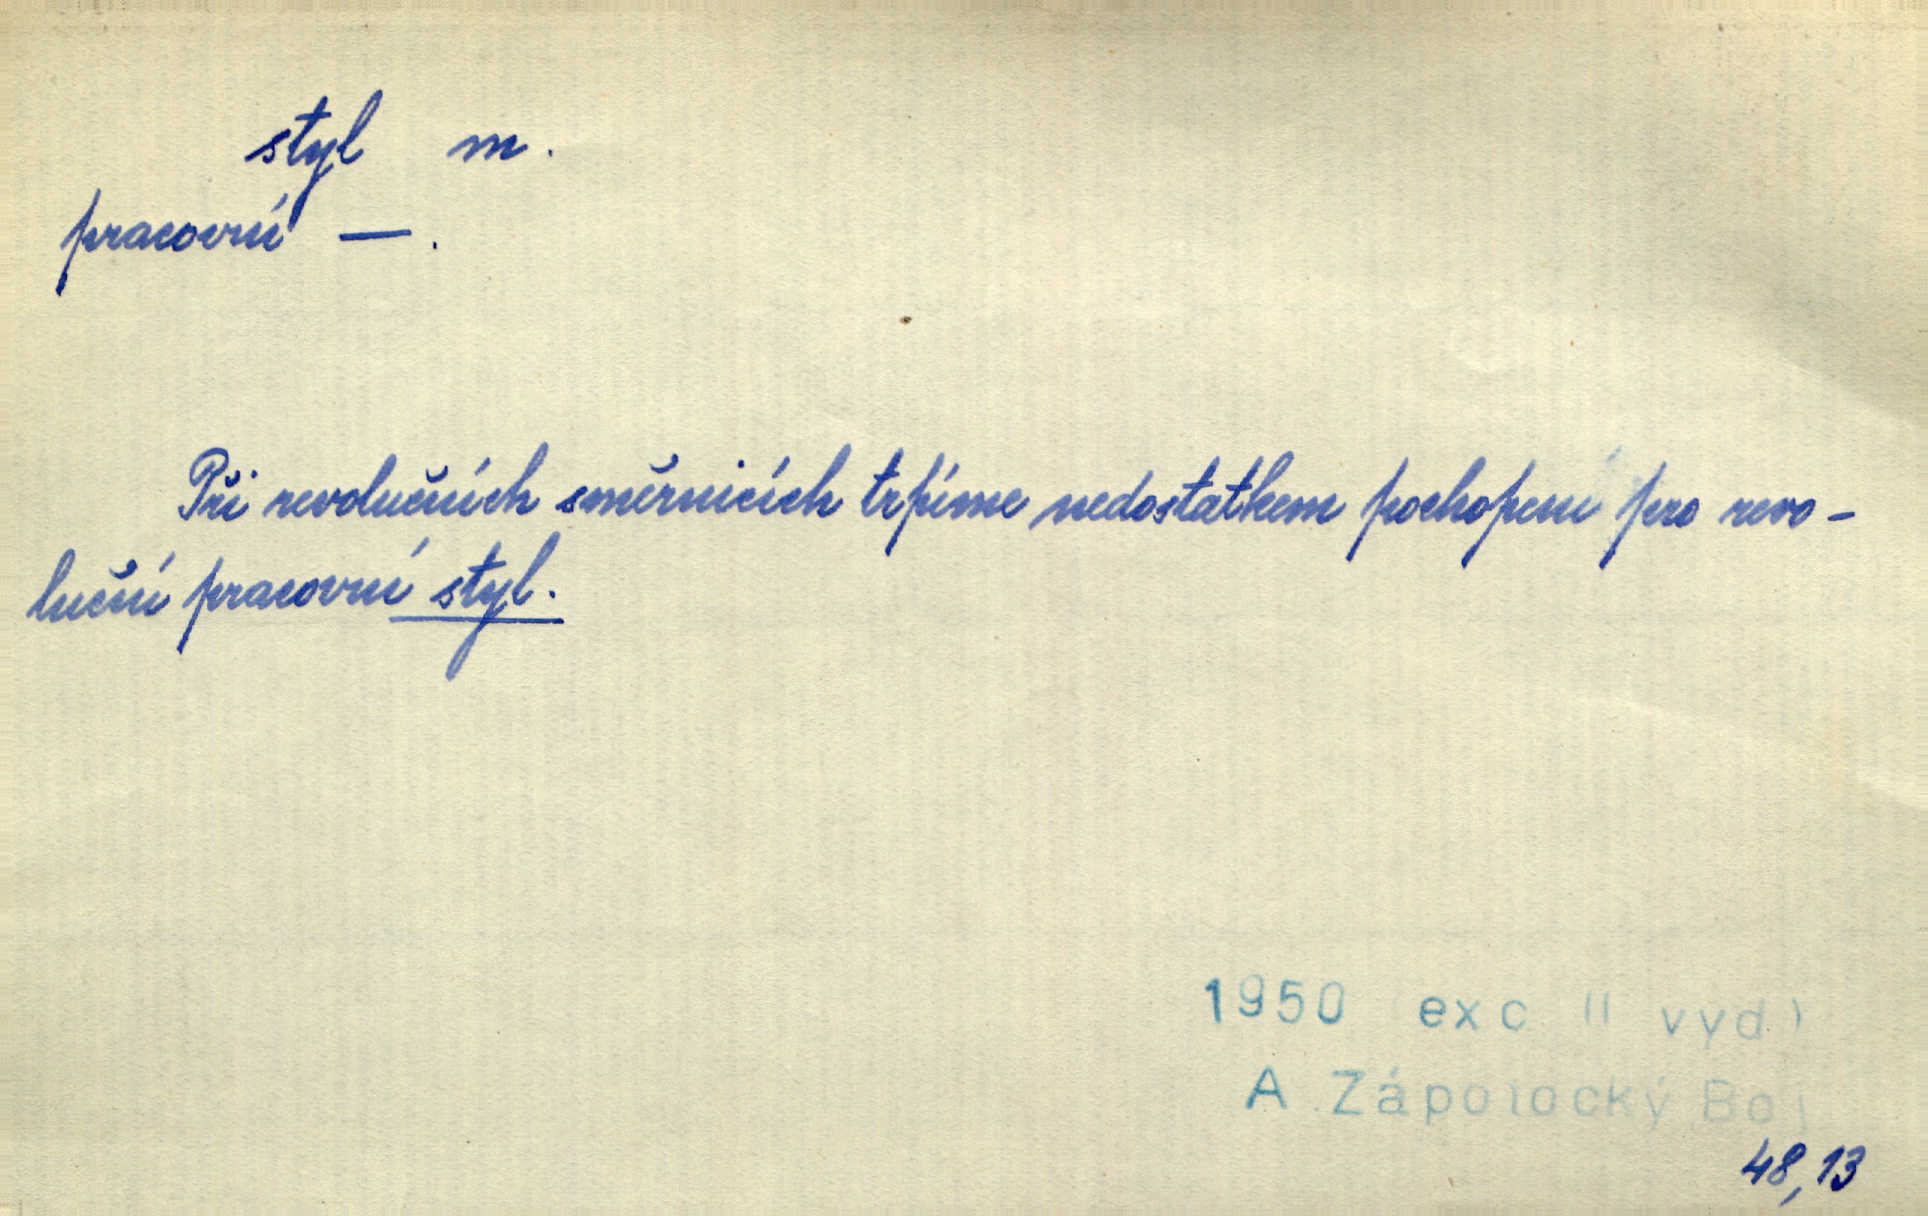 styl m.
pracovní —.
Při revolučních směrnicích trpíme nedostatkem pochopení pro revo-
luční pracovní styl.
1950 exc (I vyd)
A Zápotocký Boj
48,13